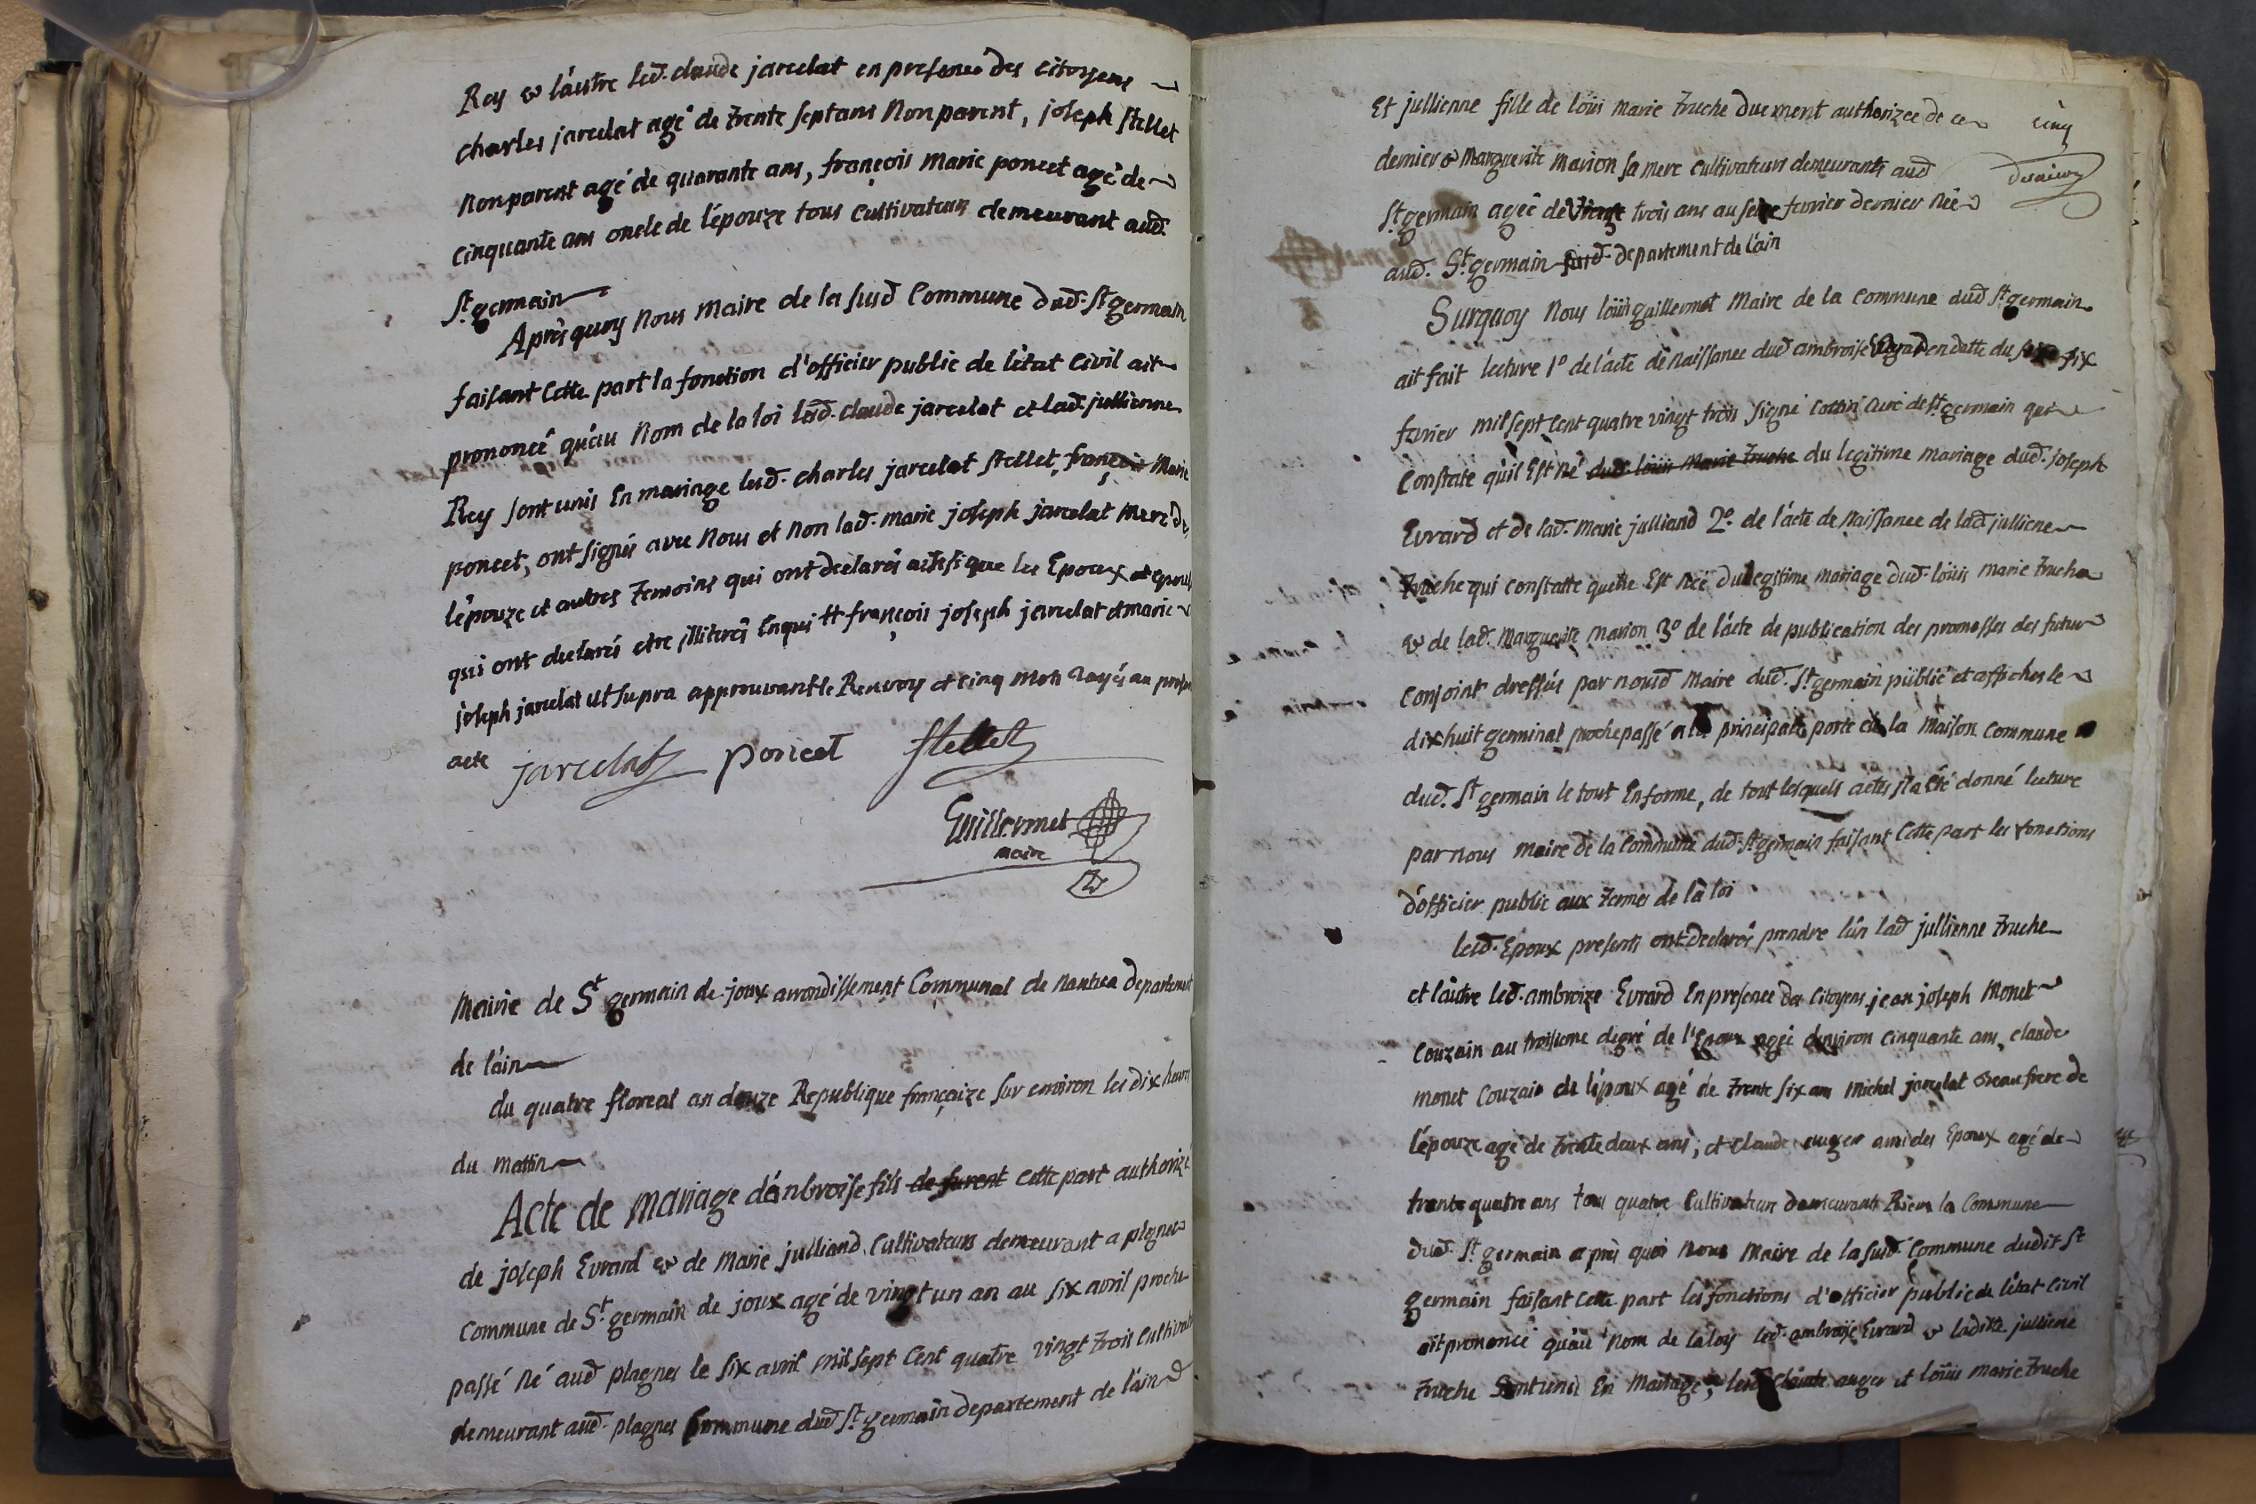 Rey & l'autre led. claude jarcelat en presence des citoyens
charles jarcelat agé de trente sept ans Non parent, joseph stellet
Non parent agé de quarante ans, françois marie poncet agé de
cinquante ans oncle de l'épouze tous cultivateurs demeurant aud.
St. germain
Après quoy Nous maire de la susd Commune dud. St germain
faisant Cette part la fonction d'officier public de l'état Civil ait
prononcé qu'au Nom de la loi led. claude jarcelat et lad. jullienne
Rey sont unis En mariage led. charles jarcelat stellet, françois Marie
poncet, ont signés avec Nous et Non lad. marie joseph jarcelat Mere de
l'épouze et autres temoins qui ont declarés ainsi que les Epoux et epouse
qui ont declarés etre illiterés Enquis # françois joseph jarcelat et marie
joseph jarcelat ut supra approuvant le Renvoy et cinq mots Rayés au present
acte jarcelat poncet stellet
Guillermet
maire
Mairie de St germain de joux arrondissement Communal de Nantua departement
de l'ain
du quatre floreal an douze Republique françaize sur environ les dix heures
du matin
Acte de mariage d'ambroise fils de furent cette part authorizé
de joseph Evrard & de Marie julliand Cultivateurs demeurant a plagnes
Commune de St. germain de joux agé de vingt un an au six avril proche
passé Né aud plagnes le six avril mil sept Cent quatre vingt trois Cultivateur
demeurant aud. plagnes Commune dud St. germain departement de l'ain
Et jullienne fille de loüis marie truche duement authorizée de ce cinq
dernier & Marguerite marion sa mere Cultivateurs demeurants aud
St. germain agée de vingt trois ans au seize fevrier dernier Née
aud. St. germain susd. departement de l'ain
Surquoy Nous loüis guillermet Maire de la Commune dud St germain
ait fait lecture 1o de l'acte de Naissance dud ambroise Evrard en datte du six
fevrier mil sept Cent quatre vingt trois signé Cottin Curé de St. germain qui
Constate qu'il Est Né dud. loüis Marie truche du legitime mariage dud. joseph
Evrard et de lad. Marie julliand 2o. de l'acte de Naissance de lad julliene
truche qui constatte qu'elle Est Née du legitime mariage dud. loüis marie truche
& de lad. Marguerite marion 3o de l'acte de publication des promesses des futur
Conjoint dressés par nousd Maire dud. St. germain publié et affiches le
dix huit germinal proche passé a la principale porte de la maison Commune
dud. St germain le tout En forme, de tout lesquels actes il a été donné lecture
par nous maire de la Commune dud. St germain faisant Cette part les fonctions
d'officier public aux termes de la loi
lesd. Epoux presents ont declarés prendre l'un lad jullienne truche
et l'autre led. ambroize Evrard En presence des Citoyens jean joseph Monet
Couzain au troisieme degré de l'Epoux agé d'environ cinquante ans, claude
monet Couzain de l'époux agé de trente six ans michel jarcelat Beau frere de
l'épouze agé de trente deux ans; et claude auger ami des Epoux agé de
trente quatre ans tous quatre Cultivateurs demeurants Riere la Commune
dud. St germain après quoi Nous Maire de la susd. Commune dudit St
germain faisant Cette part les fonctions d'officier public de l'état Civil
ait prononcé qu'au Nom de la loy led. ambroise Evrard & ladite julliene
truche Sont unis En Mariage, led claude auger et loüis marie truche